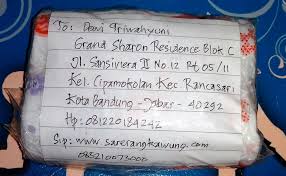 To: Dewi Triwahyuni
Grand Sharon Residence Blok C
Jl. Sansiviera II No 12 Rt 05/11
Kel. Cipamokolan Kec Rancasari
Kota Bandung - Jabar - 40292
Hp: 081220184242
Sip: www.sarerangkawung.com
085210073000